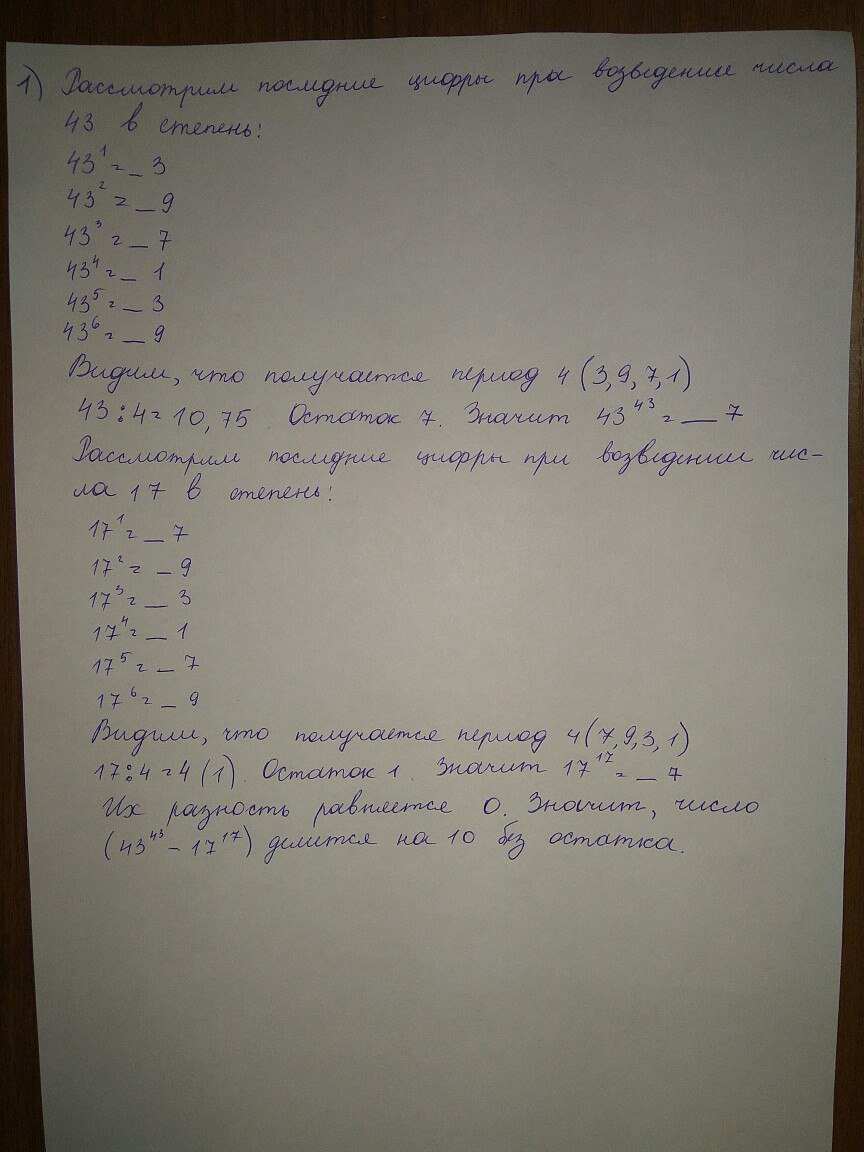 1) Рассмотрим последние цифры при возведение числа
43 в степень:
43¹ = _ 3
43² = _ 9
43³ = _ 7
43⁴ = _ 1
43⁵ = _ 3
43⁶ = _ 9
Видим, что получается период 4 (3,9,7,1)
43:4=10,75. Остаток 7. Значит 43⁴³ = _ 7
Рассмотрим последние цифры при возведении чис-
ла 17 в степень:
17¹ = _ 7
17² = _ 9
17³ = _ 3
17⁴ = _ 1
17⁵ = _ 7
17⁶ = _ 9
Видим, что получается период 4(7,9,3,1)
17:4=4(1). Остаток 1. Значит 17¹⁷ = _ 7
Их разность равняется 0. Значит, число
(43⁴³ - 17¹⁷) делится на 10 без остатка.